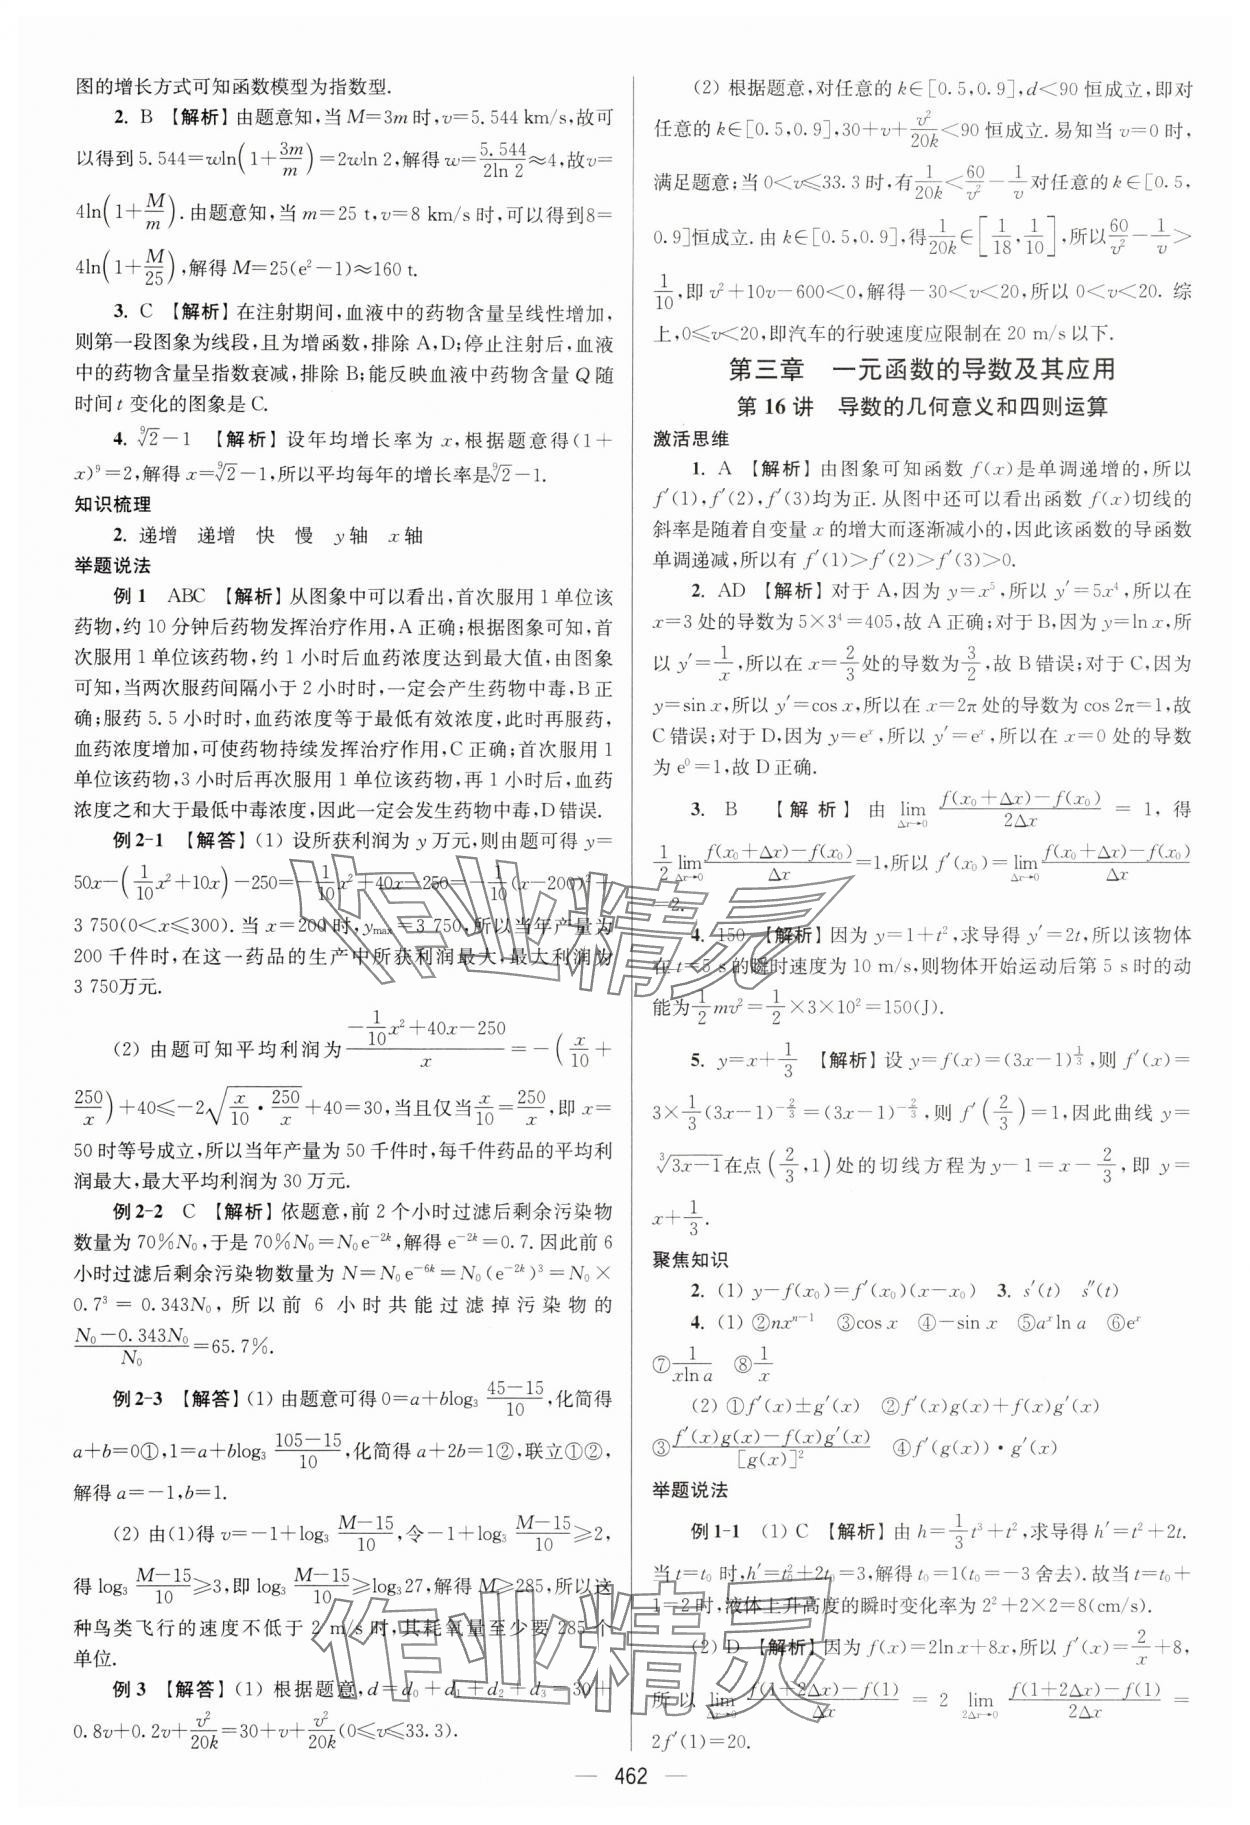 图的增长方式可知函数模型为指数型.
2. B 【解析】由题意知,当 M=3m 时,v=5.544 km/s,故可
以得到5.544=wln(1+3m/m)=2wln 2,解得 w=5.544/(2ln 2)≈4,故v=
4ln(1+M/m).由题意知,当 m=25 t,v=8 km/s时,可以得到8=
4ln(1+M/25),解得 M=25(e²-1)≈160 t.
3. C 【解析】在注射期间,血液中的药物含量呈线性增加,
则第一段图象为线段,且为增函数,排除 A,D;停止注射后,血液
中的药物含量呈指数衰减,排除 B;能反映血液中药物含量 Q 随
时间 t 变化的图象是 C.
4. ⁹√2-1 【解析】设年均增长率为 x,根据题意得(1+
x)⁹=2,解得 x=⁹√2-1,所以平均每年的增长率是⁹√2-1.
知识梳理
2. 递增 递增 快 慢 y轴 x轴
举题说法
例 1 ABC 【解析】从图象中可以看出,首次服用 1 单位该
药物,约 10 分钟后药物发挥治疗作用,A 正确;根据图象可知,首
次服用 1 单位该药物,约 1 小时后血药浓度达到最大值,由图象
可知,当两次服药间隔小于 2 小时时,一定会产生药物中毒,B 正
确;服药 5.5 小时时,血药浓度等于最低有效浓度,此时再服药,
血药浓度增加,可使药物持续发挥治疗作用,C 正确;首次服用 1
单位该药物,3 小时后再次服用 1 单位该药物,再 1 小时后,血药
浓度之和大于最低中毒浓度,因此一定会发生药物中毒,D 错误.
例 2-1 【解答】(1) 设所获利润为 y 万元,则由题可得 y=
50x-(1/10 x²+10x)-250=-1/10 x²+40x-250=-1/10 (x-200)²+
3 750(0<x≤300). 当 x=200时,ymax=3 750,所以当年产量为
200 千件时,在这一药品的生产中所获利润最大,最大利润为
3 750万元.
(2) 由题可知平均利润为(-1/10 x²+40x-250)/x=-(x/10+
250/x)+40≤-2√(x/10·250/x)+40=30,当且仅当x/10=250/x,即 x=
50 时等号成立,所以当年产量为 50 千件时,每千件药品的平均利
润最大,最大平均利润为 30 万元.
例 2-2 C 【解析】依题意,前 2 个小时过滤后剩余污染物
数量为 70%N₀,于是 70%N₀=N₀e⁻²ᵏ,解得 e⁻²ᵏ=0.7. 因此前 6
小时过滤后剩余污染物数量为 N=N₀e⁻⁶ᵏ=N₀(e⁻²ᵏ)³=N₀×
0.7³=0.343N₀,所以前 6 小时共能过滤掉污染物的
(N₀-0.343N₀)/N₀=65.7%.
例 2-3 【解答】(1) 由题意可得 0=a+blog₃ (45-15)/10,化简得
a+b=0①,1=a+blog₃ (105-15)/10,化简得 a+2b=1②,联立①②,
解得 a=-1,b=1.
(2) 由(1)得 v=-1+log₃ (M-15)/10,令-1+log₃ (M-15)/10≥2,
得 log₃ (M-15)/10≥3,即 log₃ (M-15)/10≥log₃27,解得 M≥285,所以这
种鸟类飞行的速度不低于 2 m/s 时,其耗氧量至少要 285 个
单位.
例 3 【解答】(1) 根据题意,d=d₀+d₁+d₂+d₃=30+
0.8v+0.2v+v²/20k=30+v+v²/20k(0≤v≤33.3).
(2) 根据题意,对任意的 k∈[0.5,0.9],d<90 恒成立,即对
任意的 k∈[0.5,0.9],30+v+v²/20k<90 恒成立.易知当 v=0 时,
满足题意;当 0<v≤33.3 时,有1/20k<60/v²-1/v对任意的 k∈[0.5,
0.9]恒成立.由 k∈[0.5,0.9],得1/20k∈[1/18,1/10],所以60/v²-1/v>
1/10,即 v²+10v-600<0,解得-30<v<20,所以 0<v<20. 综
上,0≤v<20,即汽车的行驶速度应限制在 20 m/s 以下.
第三章 一元函数的导数及其应用
第 16 讲 导数的几何意义和四则运算
激活思维
1. A 【解析】由图象可知函数 f(x)是单调递增的,所以
f′(1),f′(2),f′(3)均为正.从图中还可以看出函数 f(x)切线的
斜率是随着自变量 x 的增大而逐渐减小的,因此该函数的导函数
单调递减,所以有 f′(1)>f′(2)>f′(3)>0.
2. AD 【解析】对于 A,因为 y=x⁵,所以 y′=5x⁴,所以在
x=3 处的导数为 5×3⁴=405,故 A 正确;对于 B,因为 y=ln x,所
以 y′=1/x,所以在 x=2/3处的导数为3/2,故 B 错误;对于 C,因为
y=sin x,所以 y′=cos x,所以在 x=2π 处的导数为 cos 2π=1,故
C 错误;对于 D,因为 y=eˣ,所以 y′=eˣ,所以在 x=0 处的导数
为 e⁰=1,故 D 正确.
3. B 【解析】由 lim(Δx→0) (f(x₀+Δx)-f(x₀))/2Δx=1,得
1/2 lim(Δx→0) (f(x₀+Δx)-f(x₀))/Δx=1,所以 f′(x₀)=lim(Δx→0) (f(x₀+Δx)-f(x₀))/Δx
=2.
4. 150 【解析】因为 y=1+t²,求导得 y′=2t,所以该物体
在 t=5 s的瞬时速度为 10 m/s,则物体开始运动后第 5 s 时的动
能为1/2 mv²=1/2×3×10²=150(J).
5. y=x+1/3 【解析】设 y=f(x)=(3x-1)^(1/3),则 f′(x)=
3×1/3(3x-1)^(-2/3)=(3x-1)^(-2/3),则 f′(2/3)=1,因此曲线 y=
³√(3x-1)在点(2/3,1)处的切线方程为y-1=x-2/3,即 y=
x+1/3.
聚焦知识
2. (1) y-f(x₀)=f′(x₀)(x-x₀) 3. s′(t) s″(t)
4. (1) ②nxⁿ⁻¹ ③cos x ④-sin x ⑤aˣln a ⑥eˣ
⑦1/(xln a) ⑧1/x
(2) ①f′(x)±g′(x) ②f′(x)g(x)+f(x)g′(x)
③(f′(x)g(x)-f(x)g′(x))/[g(x)]² ④f′(g(x))·g′(x)
举题说法
例 1-1 (1) C 【解析】由 h=1/3 t³+t²,求导得 h′=t²+2t.
当 t=t₀ 时,h′=t₀²+2t₀=3,解得 t₀=1(t₀=-3 舍去).故当 t=t₀+
1=2 时,液体上升高度的瞬时变化率为 2²+2×2=8(cm/s).
(2) D 【解析】因为 f(x)=2ln x+8x,所以 f′(x)=2/x+8,
所以 lim(Δx→0) (f(1+2Δx)-f(1))/Δx=2 lim(2Δx→0) (f(1+2Δx)-f(1))/2Δx=
2f′(1)=20.
— 462 —
作业精灵
作业精灵